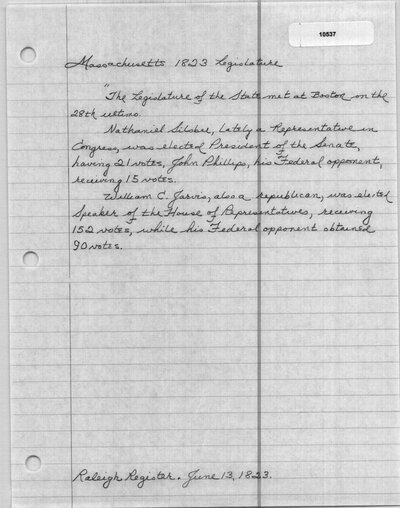 10537
Massachusetts 1823 Legislature
"The Legislature of the State met at Boston on the
28th ultimo.
Nathaniel Silsbee, lately a Representative in
Congress, was elected President of the Senate,
having 21 votes, John Phillips, his Federal opponent,
receiving 15 votes.
William C. Jarvis, also a republican, was elected
Speaker of the House of Representatives, receiving
152 votes, while his Federal opponent obtained
90 votes.
Raleigh Register. June 13, 1823.